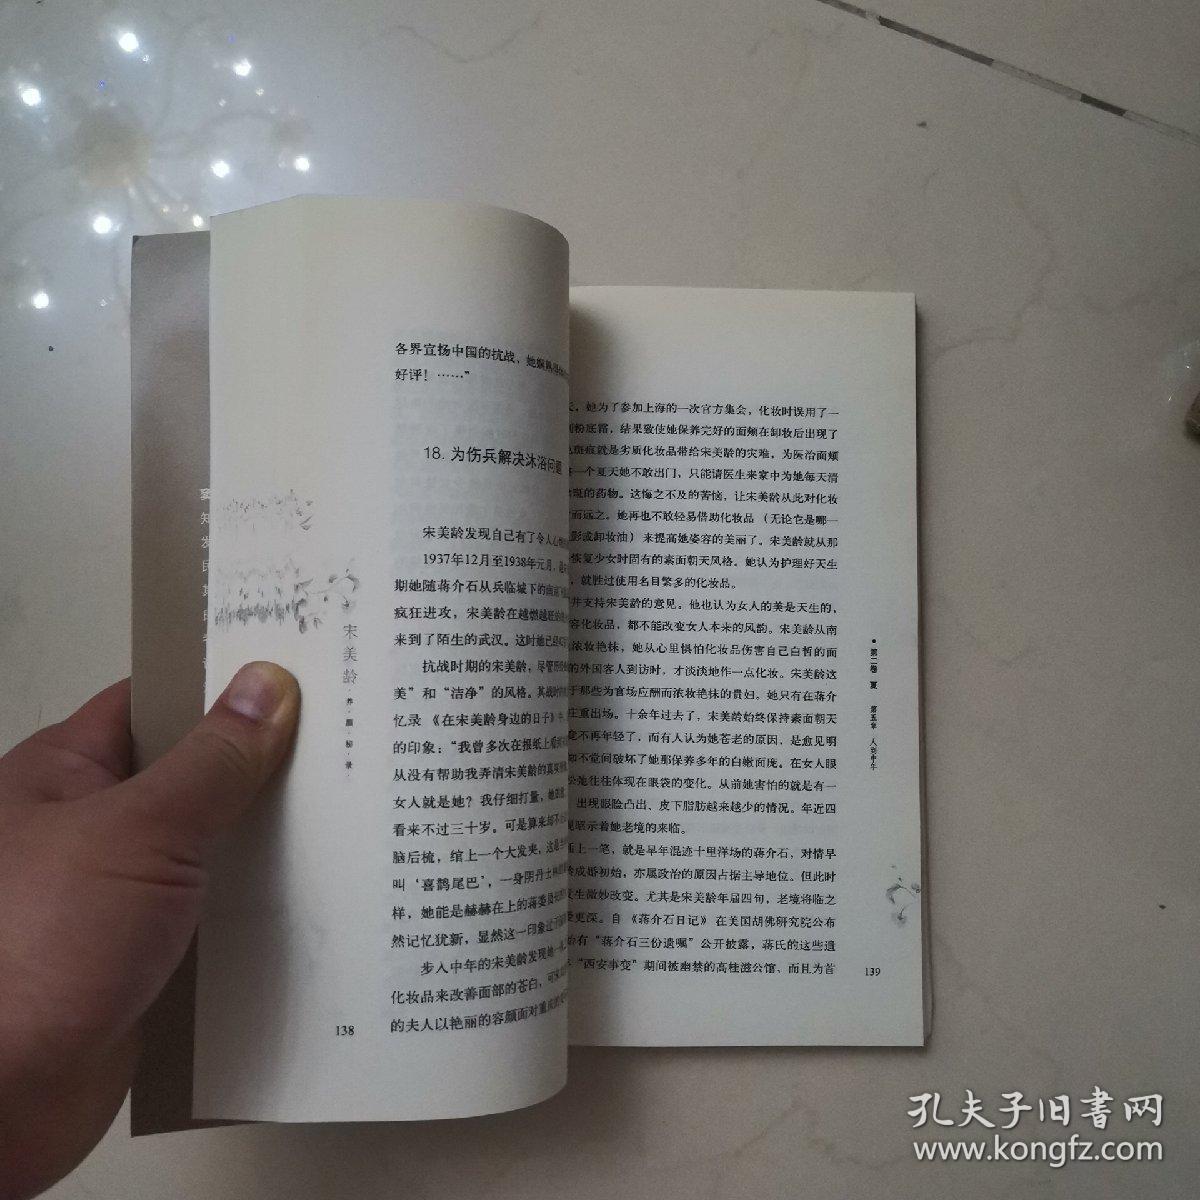 各界宣扬中国的抗战，她娴熟
好评！……”
18.为伤兵解决沐浴问题
宋美龄发现自己有了令人心
1937年12月至1938年元月，
期她随蒋介石从兵临城下的
疯狂进攻，宋美龄在越燃越旺的
来到了陌生的武汉。这时她已经
抗战时期的宋美龄，尽管
美”和“洁净”的风格。其战时
忆录《在宋美龄身边的日子》中
的印象：“我曾多次在报纸上看到
从没有帮助我弄清宋美龄的真实
女人就是她？我仔细打量，她
看来不过三十岁。可是算来却
脑后梳，绾上一个大发夹，这是
叫‘喜鹊尾巴’，一身阴丹士林
样，她能是赫赫在上的蒋委员长
然记忆犹新，显然这一印象过
步入中年的宋美龄发现她一
化妆品来改善面部的苍白，可
的夫人以艳丽的容颜面对重
138
宋美龄
·养·颜·秘·录·
天，她为了参加上海的一次官方集会，化妆时误用了一
粉底霜，结果致使她保养完好的面颊在卸妆后出现了
斑痕就是劣质化妆品带给宋美龄的灾难，为医治面颊
一个夏天她不敢出门，只能请医生来家中为她每天清
斑的药物。这悔之不及的苦恼，让宋美龄从此对化妆
而远之。她再也不敢轻易借助化妆品（无论它是哪一
影或卸妆油）来提高她姿容的美丽了。宋美龄就从那
恢复少女时固有的素面朝天风格。她认为护理好天生
，就胜过使用名目繁多的化妆品。
并支持宋美龄的意见。他也认为女人的美是天生的，
容化妆品，都不能改变女人本来的风韵。宋美龄从南
浓妆艳抹，她从心里惧怕化妆品伤害自己白皙的面
的外国客人到访时，才淡淡地作一点化妆。宋美龄这
于那些为官场应酬而浓妆艳抹的贵妇。她只有在蒋介
庄重出场。十余年过去了，宋美龄始终保持素面朝天
竟不再年轻了，而有人认为她苍老的原因，是愈见明
知不觉间破坏了她那保养多年的白嫩面庞。在女人眼
地往往体现在眼袋的变化。从前她害怕的就是有一
出现眼睑凸出、皮下脂肪越来越少的情况。年近四
昭示着她老境的来临。
上一笔，就是早年混迹十里洋场的蒋介石，对情早
成婚初始，亦属政治的原因占据主导地位。但此时
发生微妙改变。尤其是宋美龄年届四旬，老境将临之
更深。自《蒋介石日记》在美国胡佛研究院公布
始有“蒋介石三份遗嘱”公开披露，蒋氏的这些遗
“西安事变”期间被幽禁的高桂滋公馆、而且为首
139
·第二卷 夏 第五章 人到中年
孔夫子旧书网
www.kongfz.com